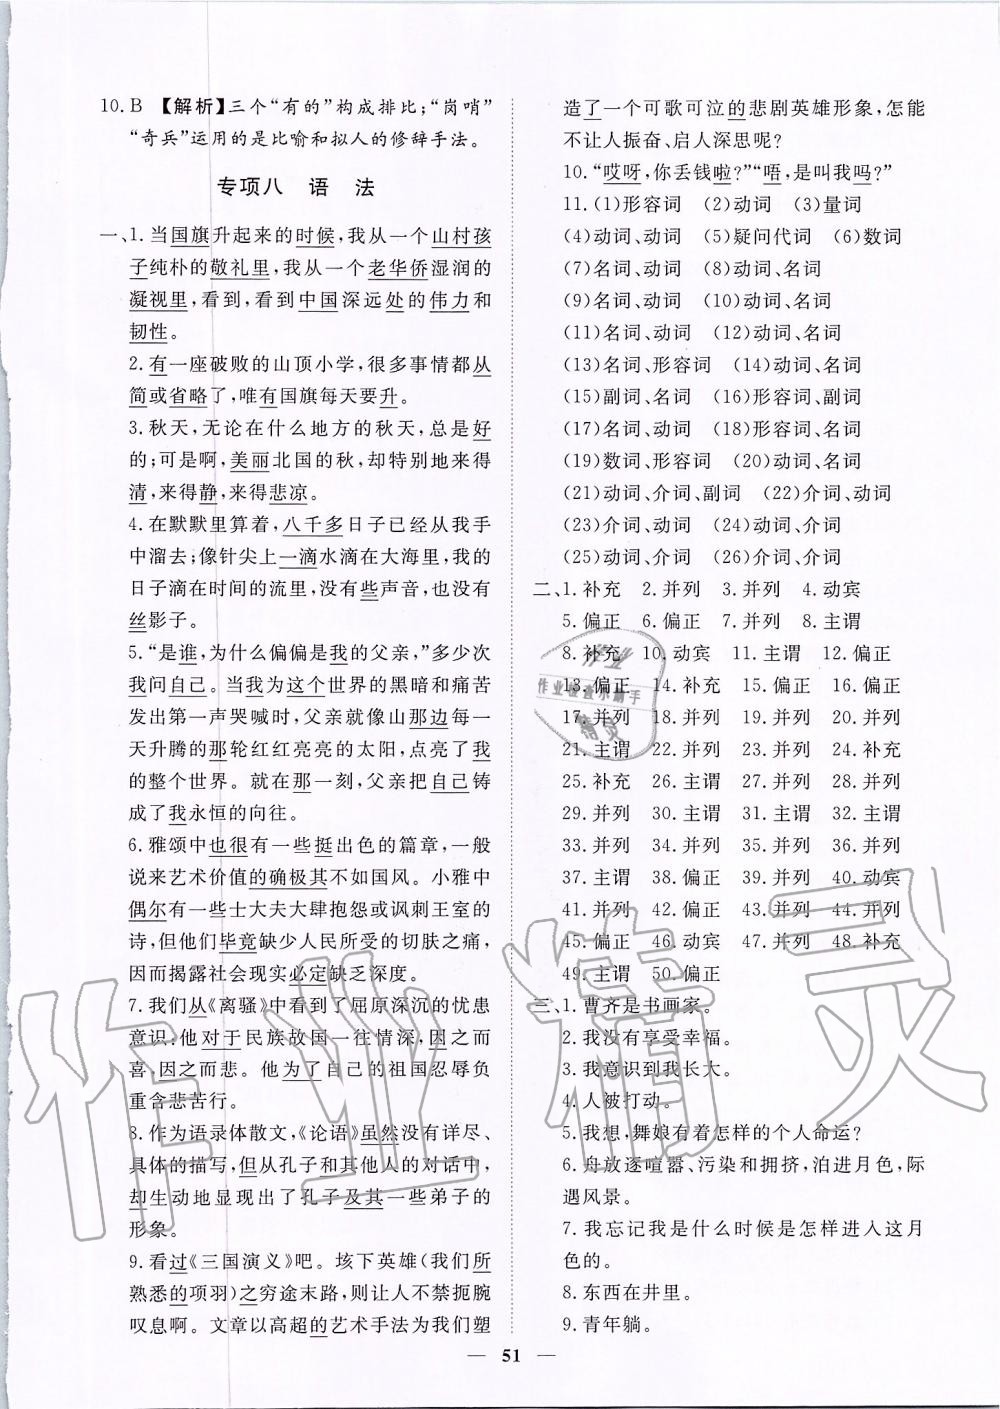 10. B 【解析】三个“有的”构成排比;“岗哨”
“奇兵”运用的是比喻和拟人的修辞手法。
专项八 语 法
一、1. 当国旗升起来的时候,我从一个山村孩
子纯朴的敬礼里,我从一个老华侨湿润的
凝视里,看到,看到中国深远处的伟力和
韧性。
2. 有一座破败的山顶小学,很多事情都从
简或省略了,唯有国旗每天要升。
3. 秋天,无论在什么地方的秋天,总是好
的;可是啊,美丽北国的秋,却特别地来得
清,来得静,来得悲凉。
4. 在默默里算着,八千多日子已经从我手
中溜去;像针尖上一滴水滴在大海里,我的
日子滴在时间的流里,没有些声音,也没有
丝影子。
5. “是谁,为什么偏偏是我的父亲,”多少次
我问自己。当我为这个世界的黑暗和痛苦
发出第一声哭喊时,父亲就像山那边每一
天升腾的那轮红红亮亮的太阳,点亮了我
的整个世界。就在那一刻,父亲把自己铸
成了我永恒的向往。
6. 雅颂中也很有一些挺出色的篇章,一般
说来艺术价值的确极其不如国风。小雅中
偶尔有一些士大夫大肆抱怨或讽刺王室的
诗,但他们毕竟缺少人民所受的切肤之痛,
因而揭露社会现实必定缺乏深度。
7. 我们从《离骚》中看到了屈原深沉的忧患
意识:他对于民族故国一往情深,因之而
喜,因之而悲。他为了自己的祖国忍辱负
重含悲苦行。
8. 作为语录体散文,《论语》虽然没有详尽、
具体的描写,但从孔子和其他人的对话中,
却生动地显现出了孔子及其一些弟子的
形象。
9. 看过《三国演义》吧。垓下英雄(我们所
熟悉的项羽)之穷途末路,则让人不禁扼腕
叹息啊。文章以高超的艺术手法为我们塑
造了一个可歌可泣的悲剧英雄形象,怎能
不让人振奋、启人深思呢?
10. “哎呀,你丢钱啦?”“唔,是叫我吗?”
11. (1)形容词 (2)动词 (3)量词
(4)动词、动词 (5)疑问代词 (6)数词
(7)名词、动词 (8)动词、名词
(9)名词、动词 (10)动词、名词
(11)名词、动词 (12)动词、名词
(13)名词、形容词 (14)动词、名词
(15)副词、名词 (16)形容词、副词
(17)名词、动词 (18)形容词、名词
(19)数词、形容词 (20)动词、名词
(21)动词、介词、副词 (22)介词、动词
(23)介词、动词 (24)动词、介词
(25)动词、介词 (26)介词、介词
二、1. 补充 2. 并列 3. 并列 4. 动宾
5. 偏正 6. 偏正 7. 并列 8. 主谓
8. 补充 10. 动宾 11. 主谓 12. 偏正
13. 偏正 14. 补充 15. 偏正 16. 偏正
17. 并列 18. 并列 19. 并列 20. 并列
21. 主谓 22. 并列 23. 并列 24. 补充
25. 补充 26. 主谓 27. 并列 28. 并列
29. 并列 30. 主谓 31. 主谓 32. 主谓
33. 并列 34. 并列 35. 并列 36. 并列
37. 主谓 38. 偏正 39. 并列 40. 动宾
41. 并列 42. 偏正 43. 并列 44. 并列
45. 偏正 46. 动宾 47. 并列 48. 补充
49. 主谓 50. 偏正
三、1. 曹齐是书画家。
2. 我没有享受幸福。
3. 我意识到我长大。
4. 人被打动。
5. 我想,舞娘有着怎样的个人命运?
6. 舟放逐喧嚣、污染和拥挤,泊进月色,际
遇风景。
7. 我忘记我是什么时候是怎样进入这月
色的。
8. 东西在井里。
9. 青年躺。
51
作业精灵